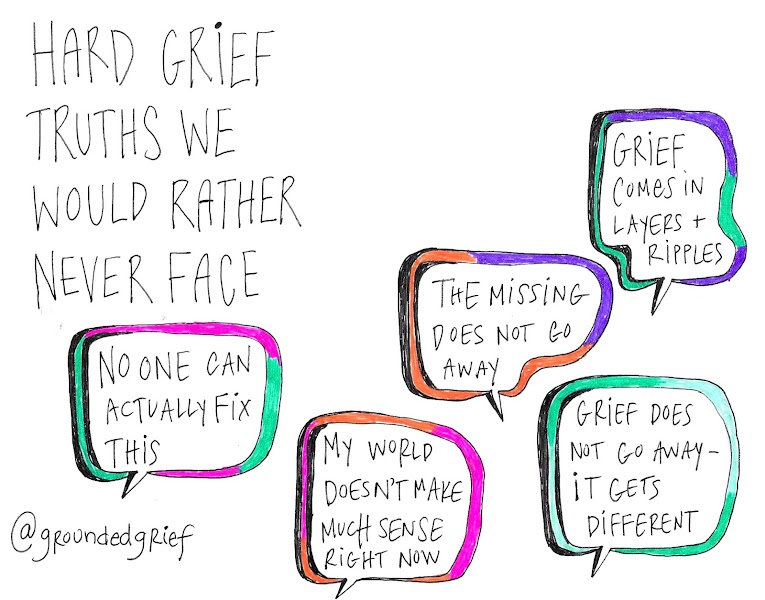 HARD GRIEF
TRUTHS WE
WOULD RATHER
NEVER FACE
GRIEF
COMES IN
LAYERS +
RIPPLES
THE MISSING
DOES NOT GO
AWAY
NO ONE CAN
ACTUALLY FIX
THIS
MY WORLD
DOESN'T MAKE
MUCH SENSE
RIGHT NOW
GRIEF DOES
NOT GO AWAY-
IT GETS
DIFFERENT
@groundedgrief